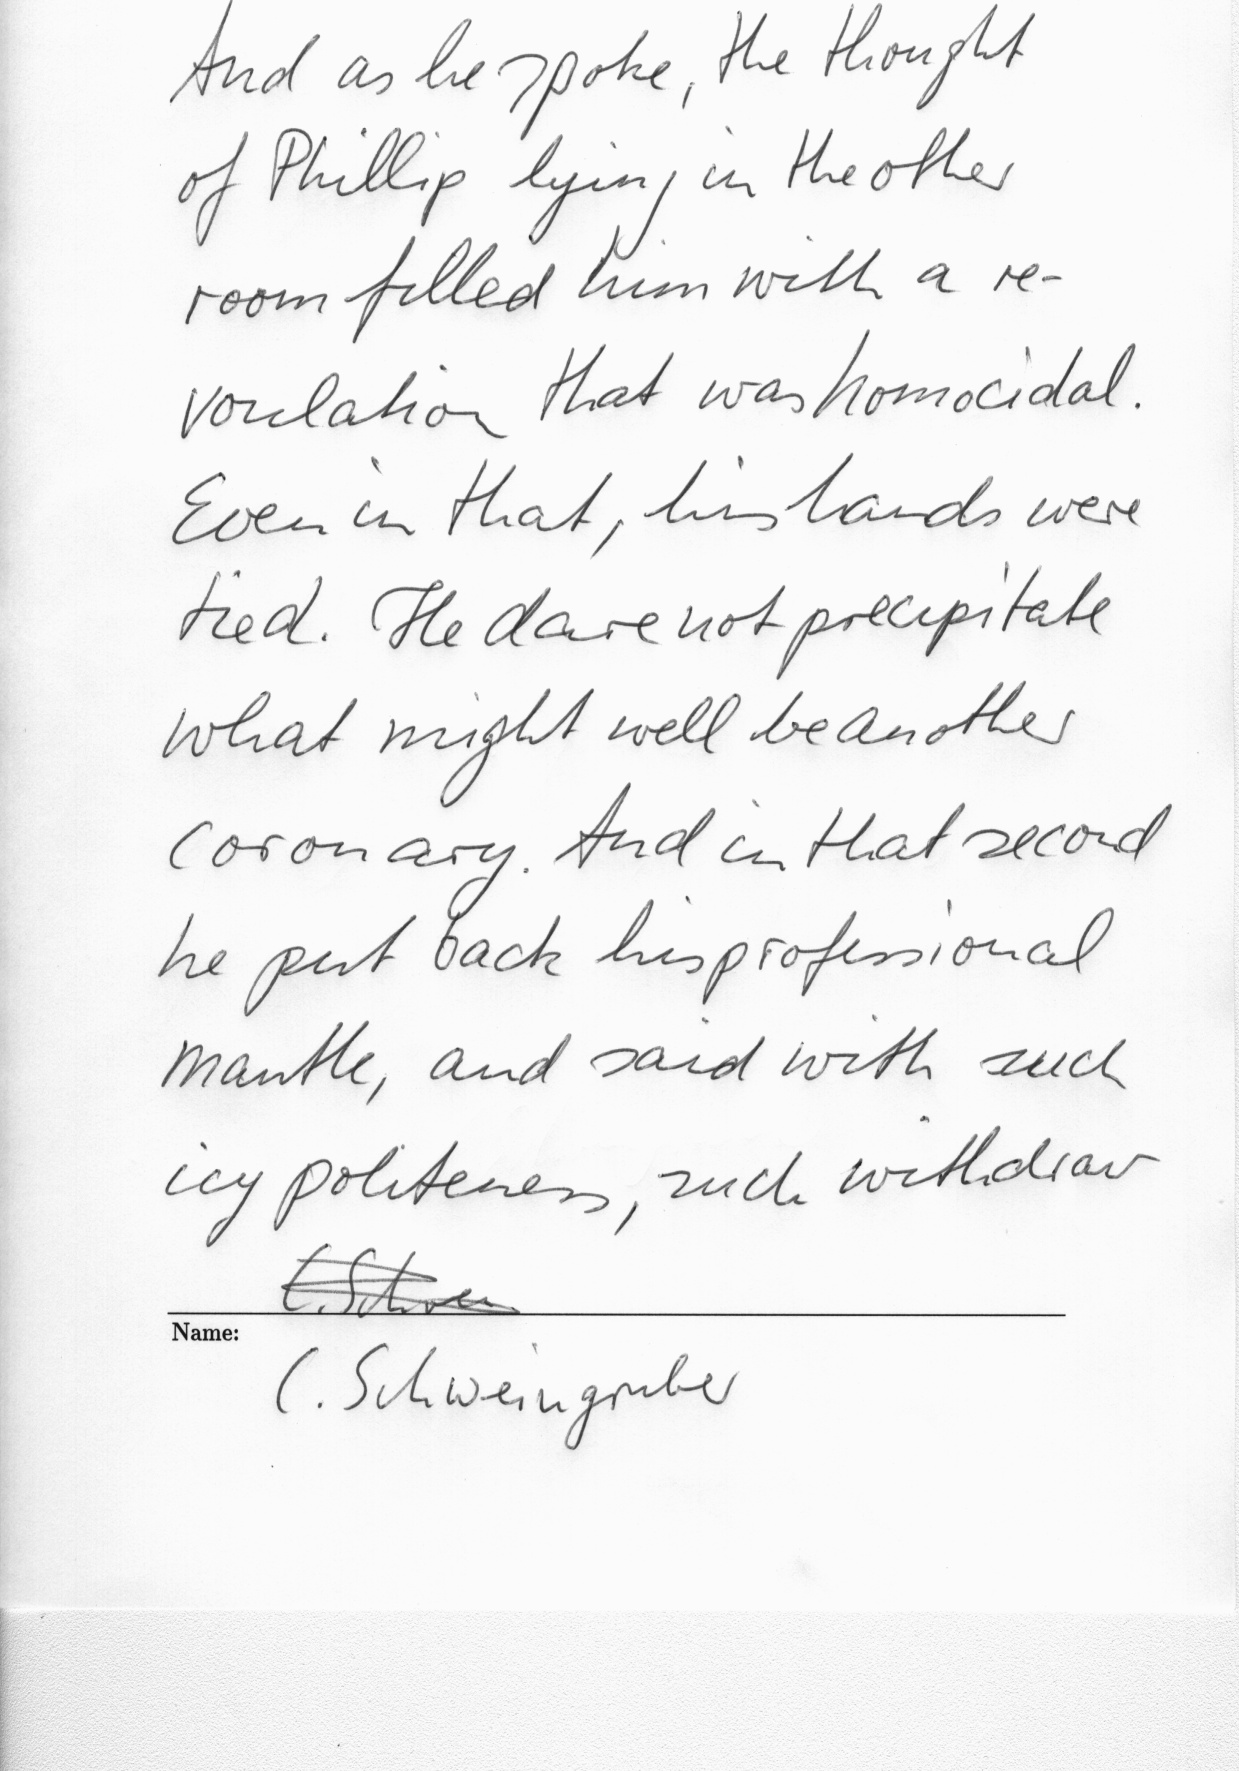 And as he spoke, the thought
of Phillip lying in the other
room filled him with a re-
voulation that was homocidal.
Even in that, his hands were
tied. He dare not precipitate
what might well be another
coronary. And in that second
he put back his professional
mantle, and said with such
icy politeness, such withdraw
C. Schwei
Name:
C. Schweingruber